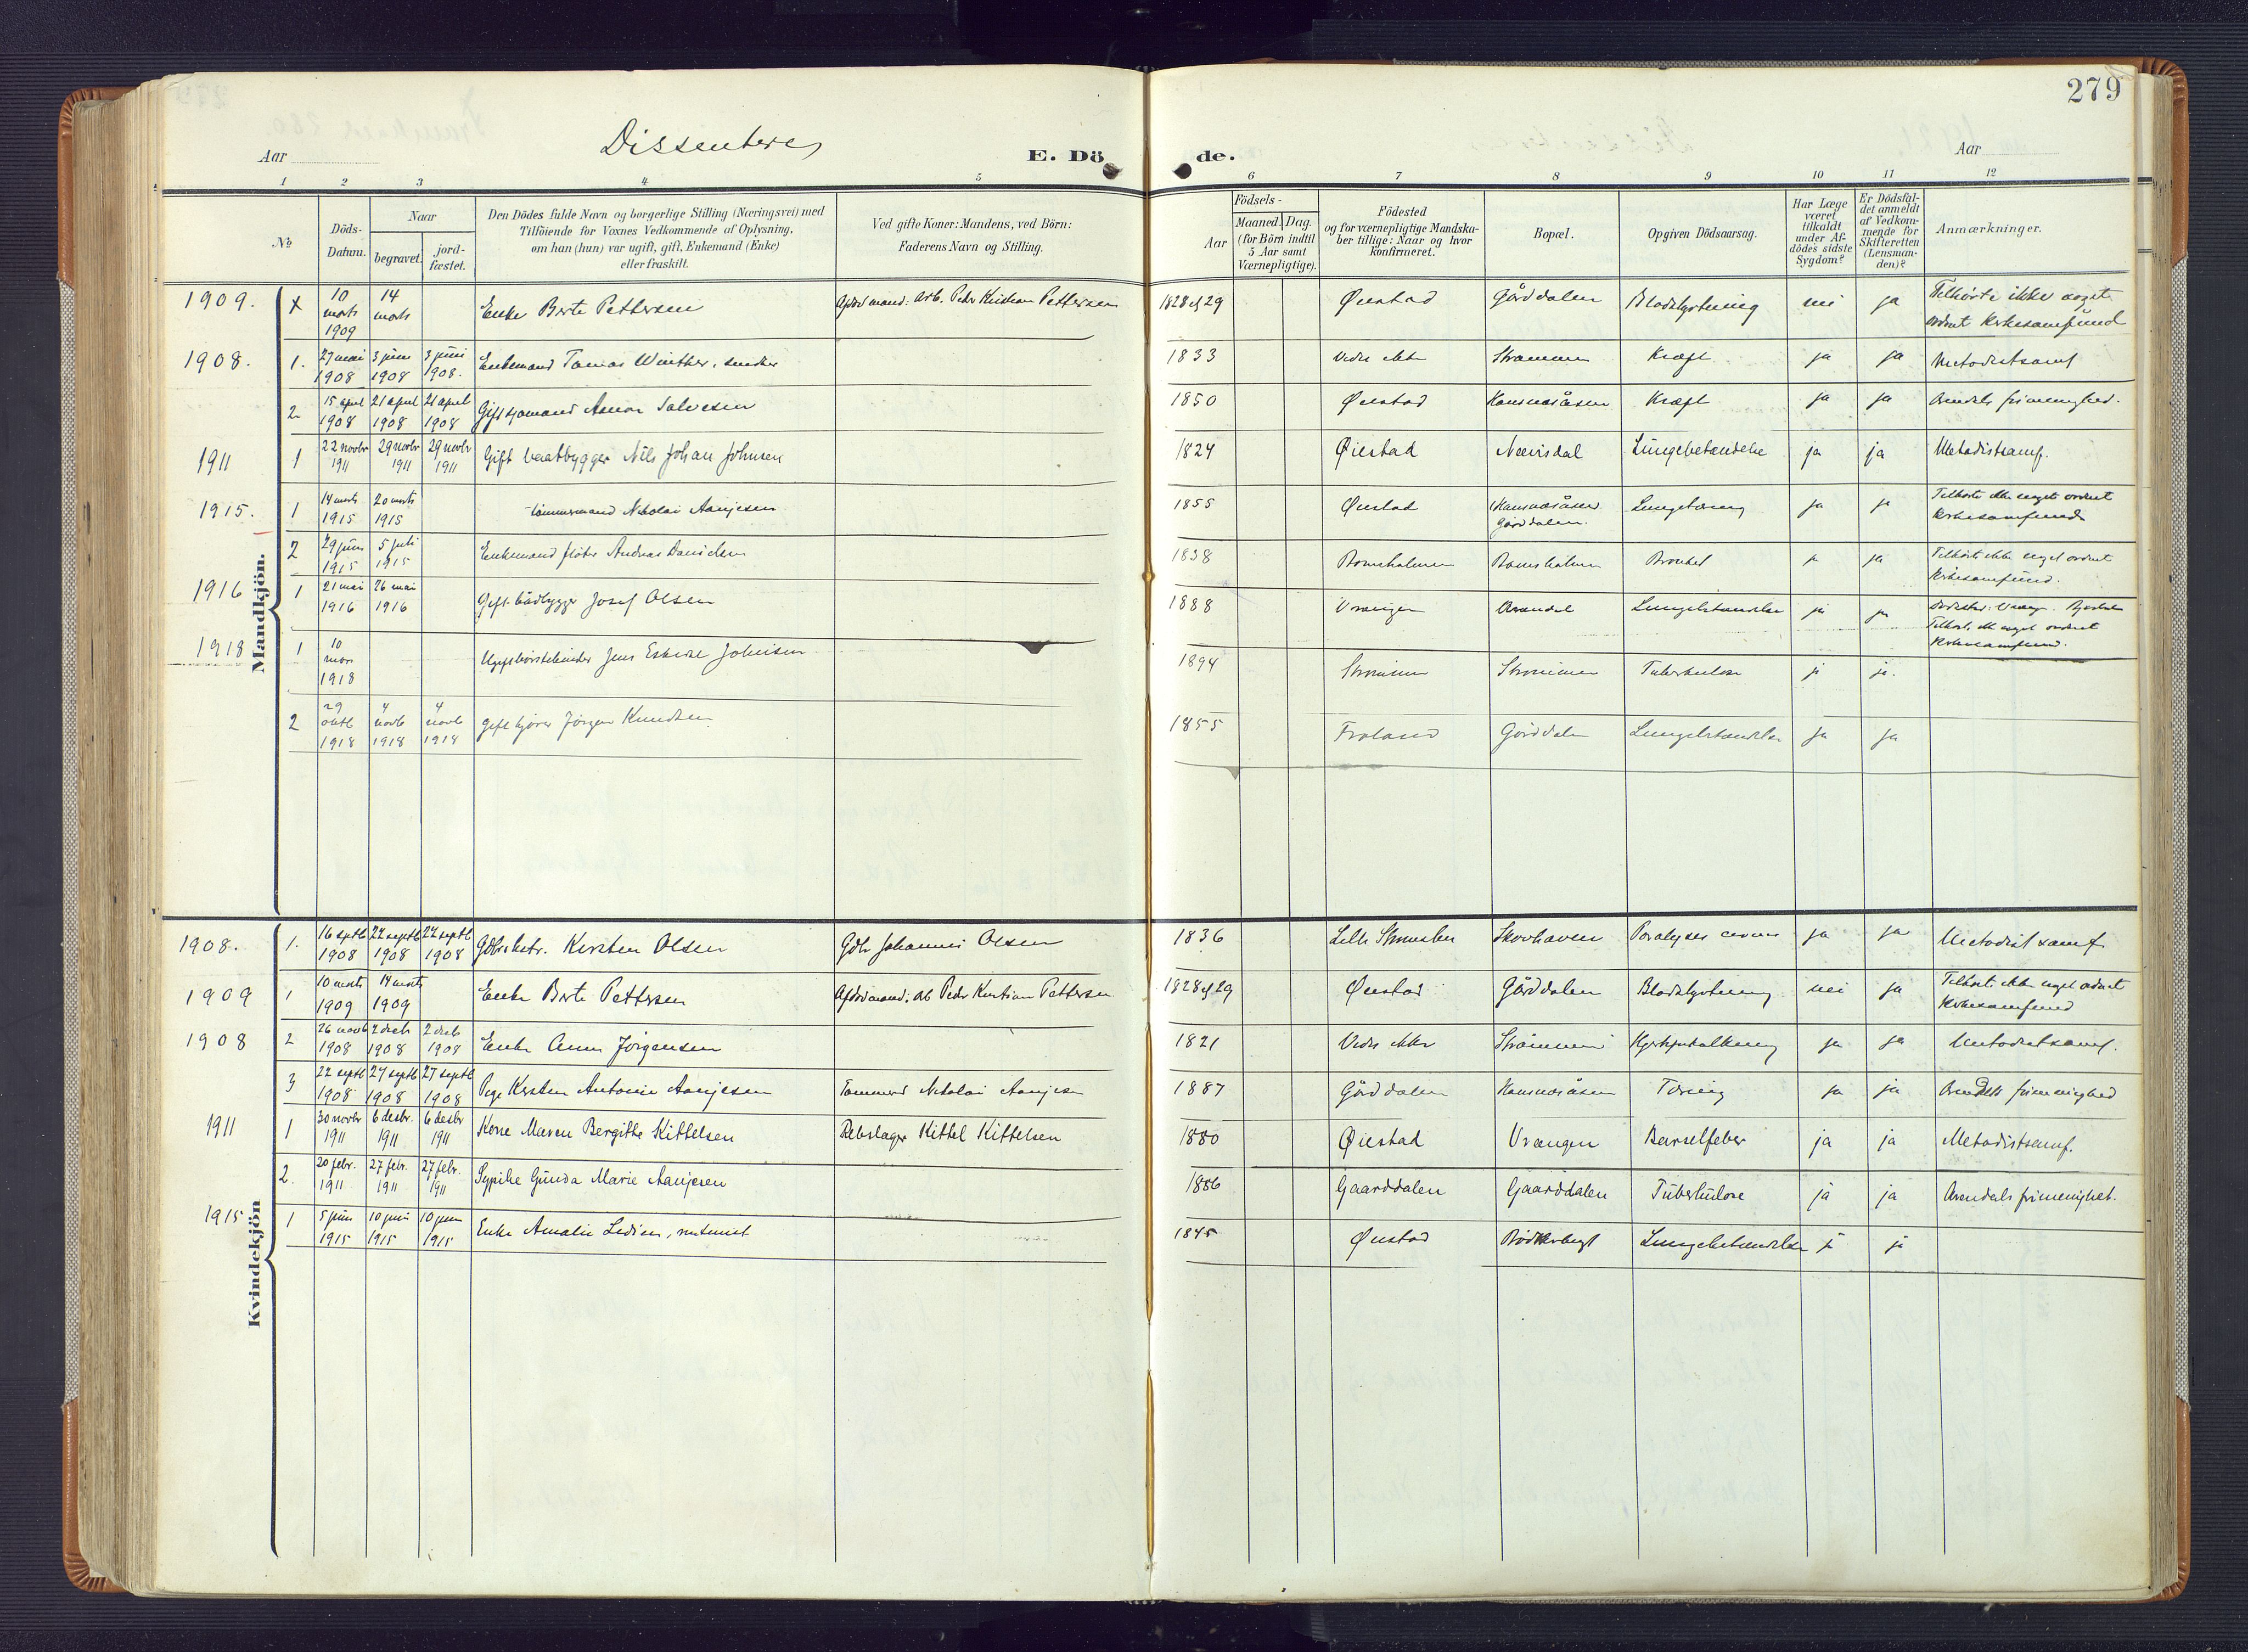 279
Aar
Dissentere
E. Dö
de.
Aar
1 2 3 4 5 6 7 8 9 10 11 12
№
Döds-
Datum.
Naar
begravet.
jord-
fæstet.
Den Dödes fulde Navn og borgerlige Stilling (Næringsvei) med
Tilföiende for Voxnes Vedkommende af Oplysning,
om han (hun) var ugift, gift, Enkemand (Enke)
eller fraskilt.
Ved gifte Koner: Mandens, ved Börn:
Faderens Navn og Stilling.
Födsels-
Aar
Maaned. Dag.
(for Börn indtil
5 Aar samt
Værnepligtige).
Födested
og for værnepligtige Mandska-
ber tillige: Naar og hvor
konfirmeret.
Bopæl.
Opgiven Dödsaarsag.
Har Læge
været
tilkaldt
under Af-
dödes sidste
Sygdom?
Er Dödsfal-
det anmeldt
af Vedkom-
mende for
Skifteretten
(Lensman-
den)?
Anmærkninger.
Mandkjön.
1909. X 10 marts 1909 14 marts Enke Berte Pettersen Afdød mand: Arb. Peder Kristian Pettersen 1828 el 29 Øiestad Gårddalen Blodstyrtning nei ja Tilhørte ikke noget
ordnet kirkesamfund
1908. 1. 27 mai 1908 3 juni 1908 3 juni 1908. Enkemand Tomas Winther, snedker 1833 Vides ikke Strømmen Kræft ja ja Metodistsamf
2 15 april 1908 21 april 1908 21 april 1908 Gift sjømand Amon Salvesen 1850 Øiestad Kræft ja ja Arendals frimenighed.
1911 1 22 novbr 1911 29 novbr 1911 29 novbr 1911 Gift baatbygger Nils Johan Johnsen 1824 Øiestad Neevisdal Lungebetændelse ja ja Metodistsamf.
1915. 1 14 marts 1915 20 marts 1915 tömmermand Nikolai Aanjesen 1855 Øiestad Gårddalen. Lungetæring ja ja Tilhørte ikke noget ordnet
kirkesamfund
2 29 juni 1915 5 juli 1915 Enkemand fløter Andreas Danielsen 1838 ja ja Tilhørte ikke noget ordnet
kirkesamfund.
1916 1 21 mai 1916 26 mai 1916 Gift bådbygger Josef Olsen 1888 Vrangen Arendal Lungebetændelse ja ja
Tilhørte ikke noget ordnet
kirkesamfund.
1918 1 10 mars 1918 Ugift børstebinder Jens Johnsen 1894 Strømmen Strømmen Tuberkulose ja ja.
2 29 oktb 1918 4 novb 1918 4 novb 1918 gift kjører Jörgen Knudsen 1855 Froland Gårddalen Lungebetændelse ja ja
Kvindekjön
1908. 1. 16 septb 1908 22 septb 1908 22 septb 1908 Kirsten Olsen Gdbr Johannes Olsen 1836 Skovhaven ja ja Metodist samf
1909 1 10 marts 1909 14 marts 1909 Enke Berte Pettersen Afdød mand: Arb Peder Kristian Pettersen 1828 el 29 Øiestad Gårddalen Blodstyrtning nei ja Tilhørte ikke noget ordnet
kirkesamfund
1908 2 26 novb 1908 2 decb 1908 2 decb 1908 Enke Anne Jörgensen 1821 Vides ikke Strømmen ja ja Metodistsamf.
3 22 septb 1908 27 septb 1908 27 septb 1908 Pige Kirsten Antonie Aanjesen Tømmerm Nikolai Aanjesen 1887 Gårddalen Tæring ja ja Arendals frimenighed
1911 1 30 novbr 1911 6 desbr. 1911 6 desbr 1911 Kone Maren Bergitte Kittelsen Rebslager Kittel Kittelsen 1880 Øiestad Vrangen Barselfeber ja ja Metodistsamf.
2. 20 febr. 1911 27 febr. 1911 27 febr. 1911 Sypike Gunda Marie Aanjesen 1886 Gaarddalen Gaarddalen Tuberkulose ja ja Arendals frimenighet.
1915 1 5 juni 1915 10 juni 1915 10 juni 1915 Enke Amalie 1845 Øiestad Lungebetændelse ja ja